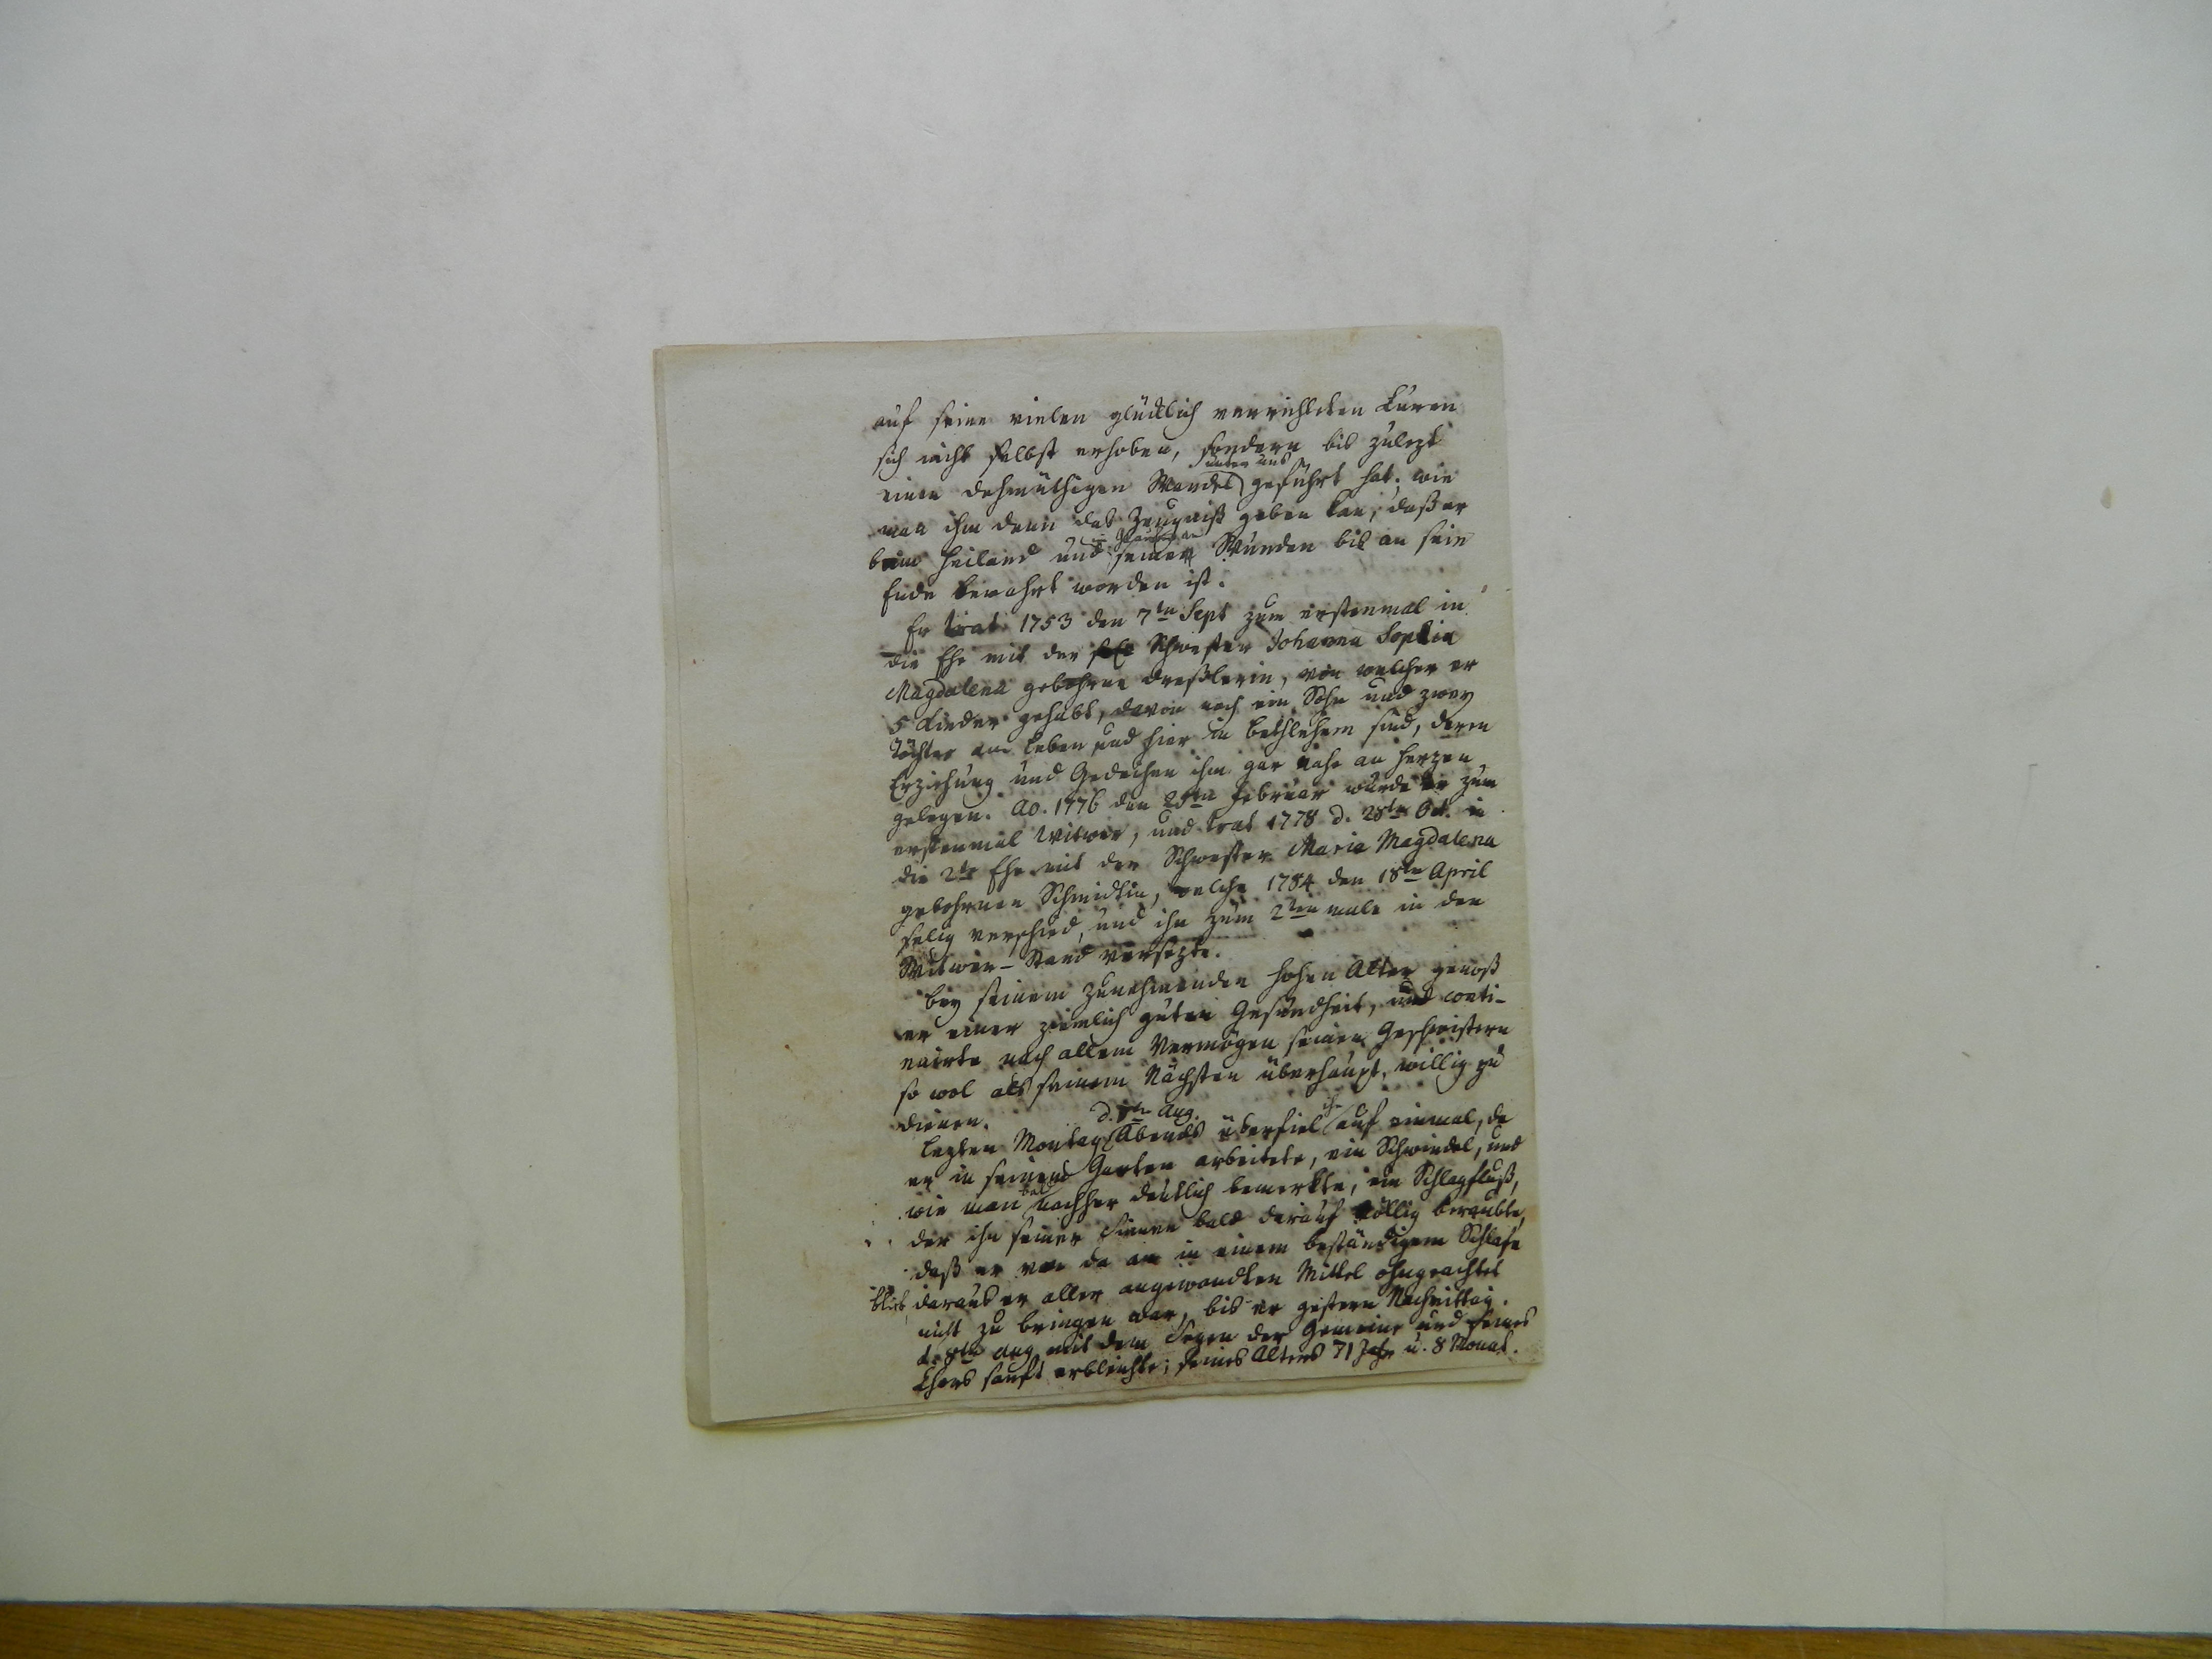 auf seine vielen glücklich verrichteten Curen
sich nicht selbst erhoben, sondern bis zulezt
einen dehmüthigen Wandel unter uns geführt hat; wie
man ihm denn das Zeugniß geben kan, daß er
beim Heiland und in seinen Wunden bis an sein
Ende bewahrt worden ist.
Er trat 1753 den 7ten Sept zum erstenmal in
die Ehe mit der Schwester Johanna Sophia
Magdalena gebohrne Dreßlerin, von welcher er
5 Kinder gehabt, davon noch ein Sohn und zwey
Töchter am Leben und hier in Bethlehem sind, deren
Erziehung und Gedeihen ihm gar nahe an Herzen
gelegen. Ao. 1776 den Februar wurde er zum
erstenmal Witwer, und trat 1778 d. 28ten Oct. in
die 2te Ehe mit der Schwester Maria Magdalena
gebohrnen Schmidtin, welche 1784 den 18ten April
selig verschied, und ihn zum 2ten male in den
Witwer-Stand versezte.
Bey seinem zunehmenden hohen Alter genoß
er einer ziemlich guten Gesundheit, und conti-
nuirte nach allem Vermögen seinen Geschwistern
so wol als seinem Nächsten überhaupt, willig zu
dienen.
Lezten Montag Aug. Abends überfiel ihn auf einmal, da
er in seinem Garten arbeitete, ein Schwindel, und
wie man bald nachher deutlich bemerkte, ein Schlagfluß,
der ihn seiner Sinnen bald darauf völlig beraubte,
daß er von da an in einem beständigem Schlafe
blieb, daraus er aller angewandten Mittel ohngeachtet
nicht zu bringen war, bis er gestern Nachmittag
d. 8ten Aug mit dem Segen der Gemeine und seines
Chors sanft erbleichte; seines Alters 71 Jahr u. 8 Monat.